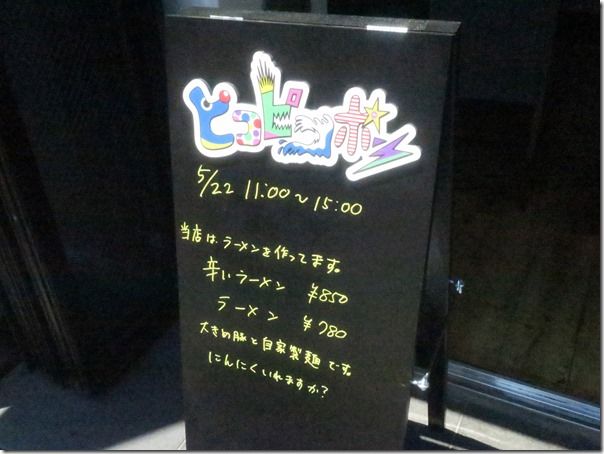 ピコピコポン
5/22 11:00~15:00
当店は、ラーメンを作ってます。
辛いラーメン ¥850
ラーメン ¥780
大きめ豚と自家製麺です。
にんにくいれますか?